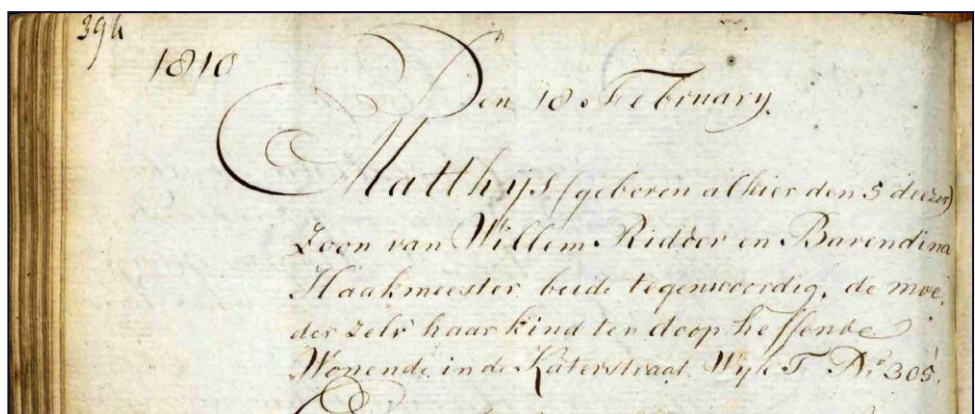 396
1810
Den 18 February
Matthys (geboren alhier den 5 deezer)
Zoon van Willem Ridder en Barendina
Haakmeester beide tegenwoordig, de moe,
der zelv haar kind ten doop heffende
Wonende in de Katerstraat Wyk F No 305